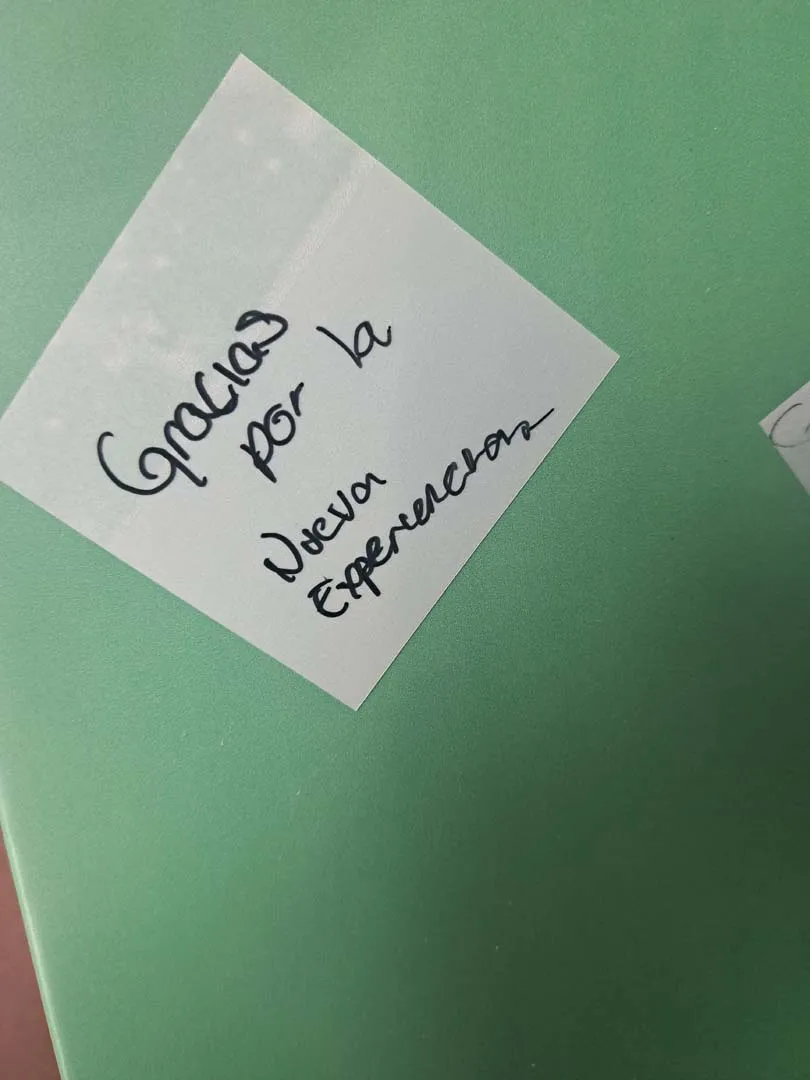 Gracias
por la
Nueva
Experiencia